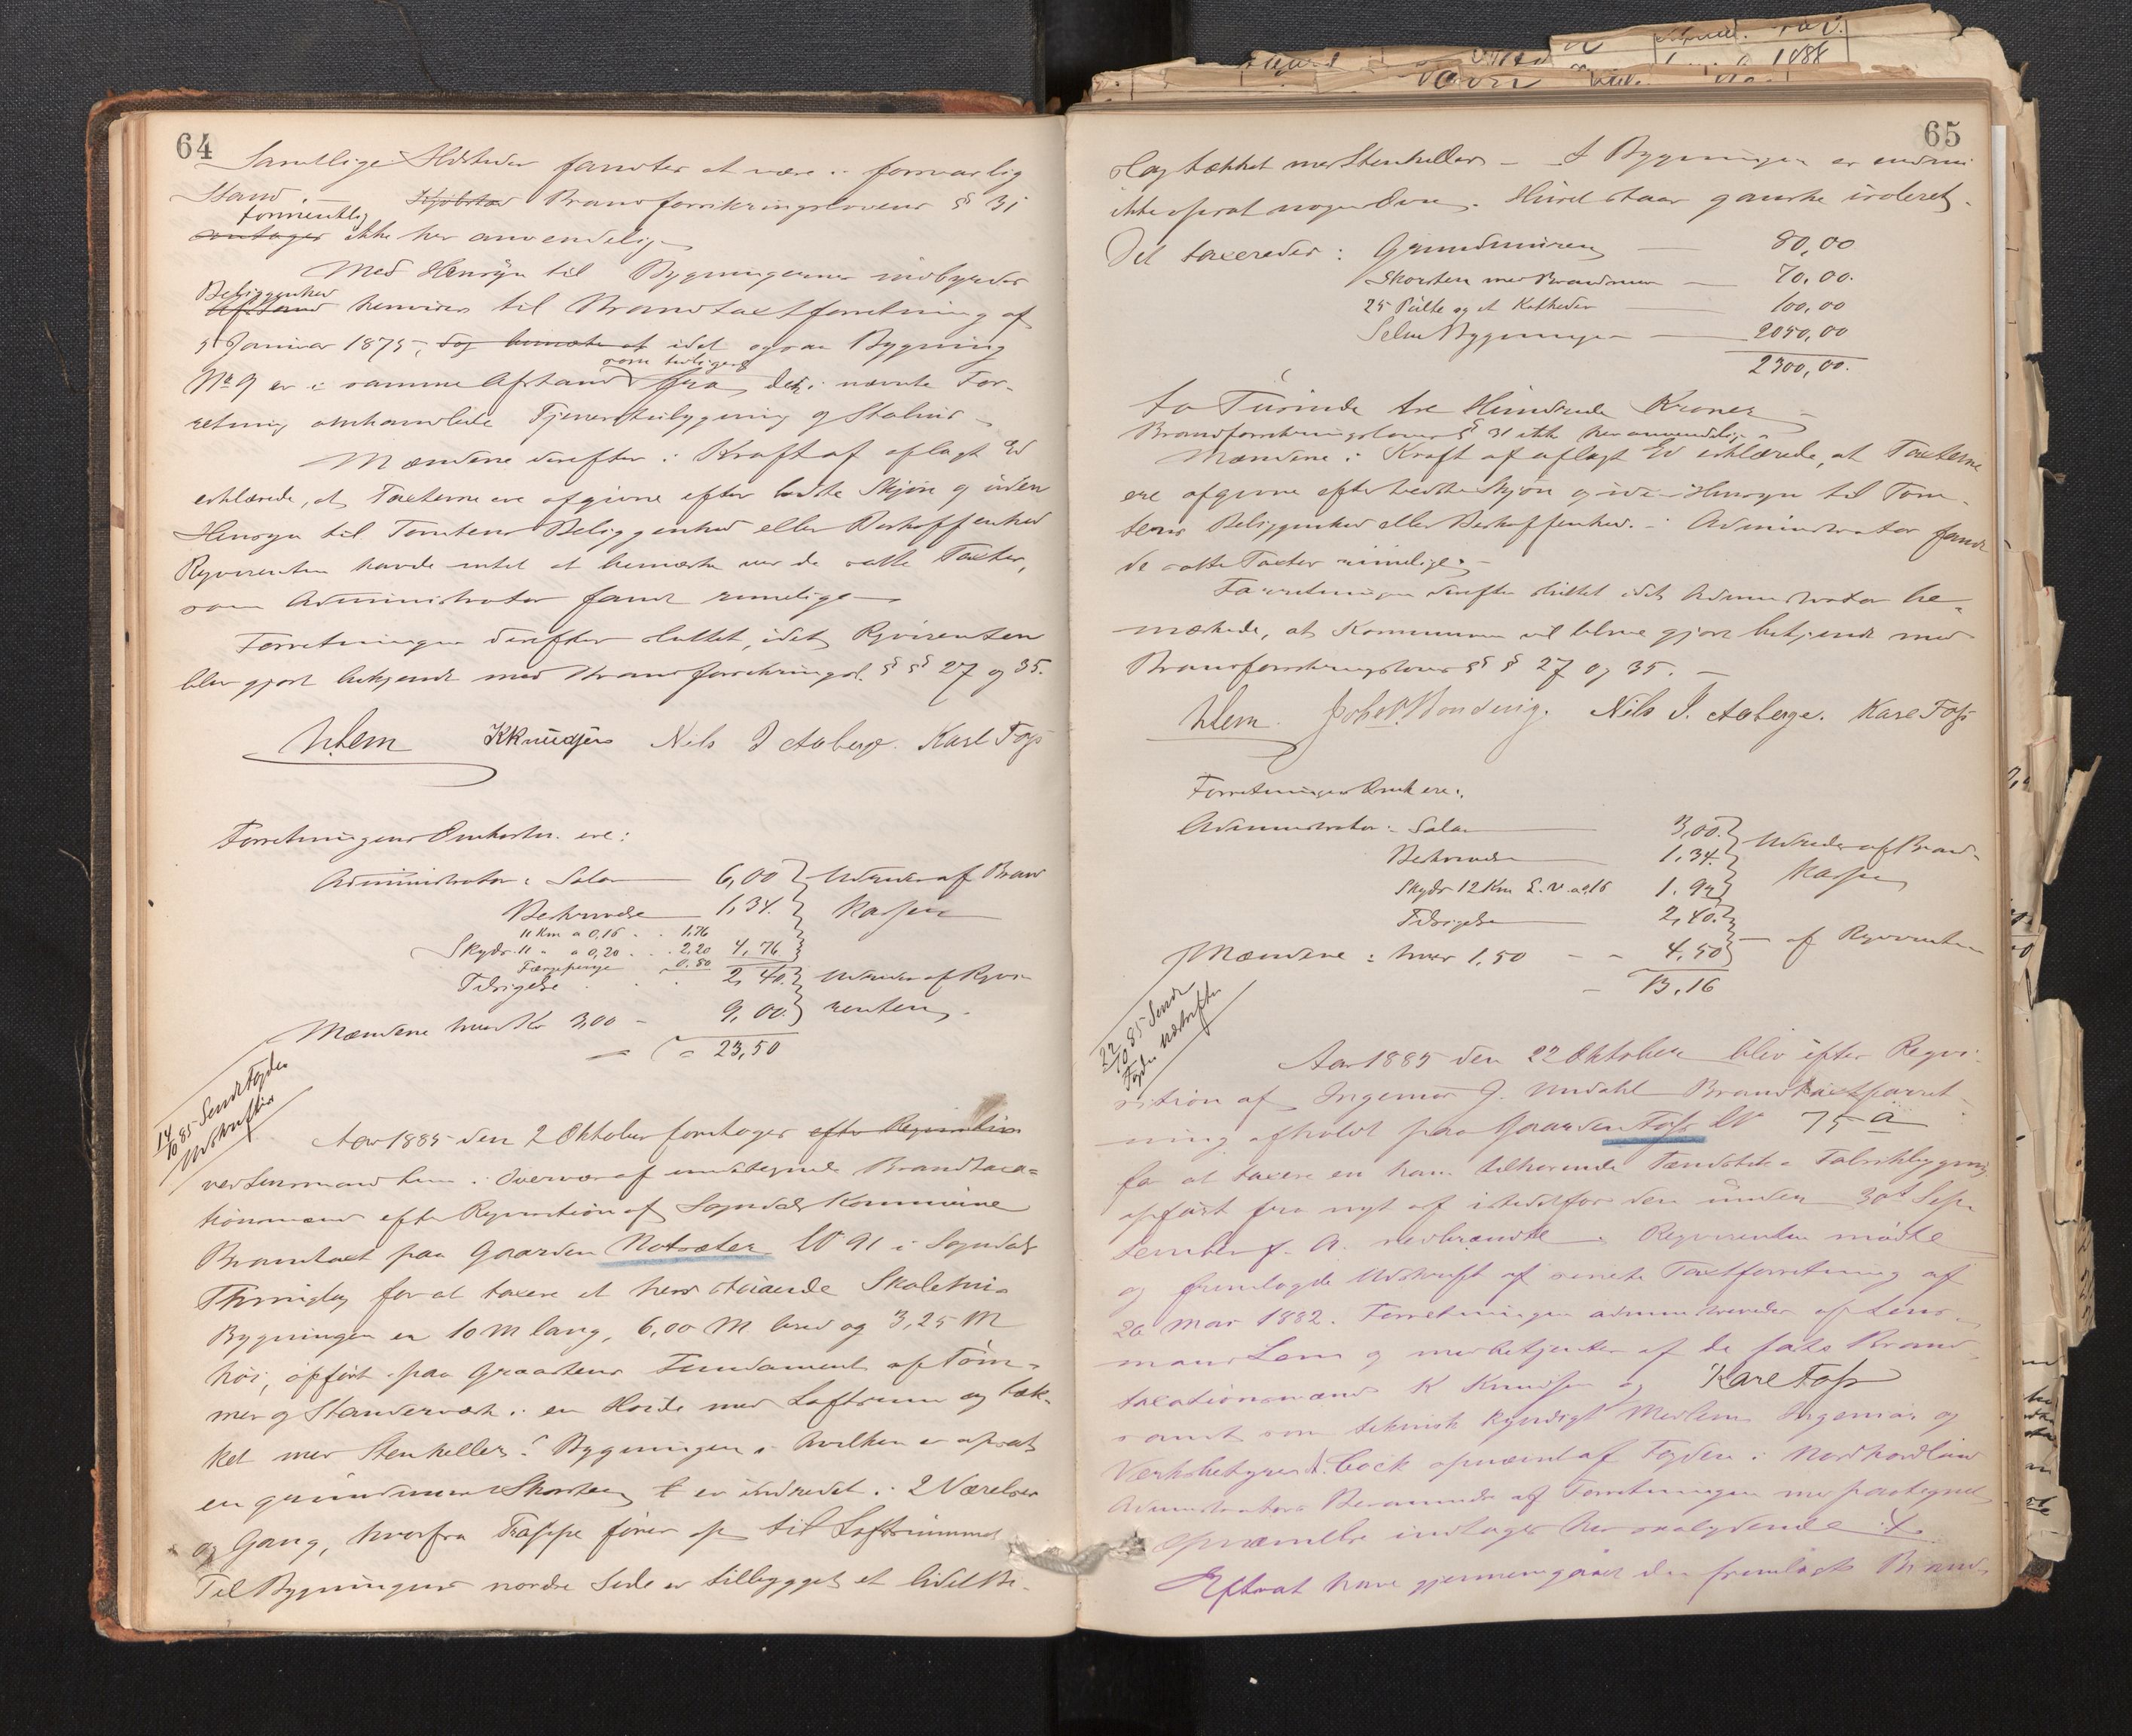 64
Samtlige Ildsteder fandtes at være i forsvarlig
Stand. – Kjøbstad Brandforsikringslovens § 31
formentlig
antages ikke her anvendelig.
Med Hensyn til Bygningernes indbyrdes
Beliggenhed
Afstand henvises til Brandtaxtforretning af
5 Januar 1875, dog bemærkes at idet ogsaa Bygning
som tidligere
No 9 er i samme Afstand fra den i nævnte For-
retning omhandlede Tjenerstubygning og Stabur –
Mændene derefter i Kraft af aflagt Ed
erklærede, at Taxterne ere afgivne efter bedste Skjøn og uden
Hensyn til Tomtens Beliggenhed eller Beskaffenhed
Reqvirenten havde intet at bemærke ved de satte Taxter,
som Administrator fandt rimelige –
Forretningen derefter sluttet, idet Reqvirenten
blev gjort bekjendt med Brandforsikringsl. §§§ 27 og 35.
Lem KKnudsen Nils J Aaberge. Karl Foss
Forretningens Omkostn. ere:
Administrator: Salar 6,00 Udredes af Brand
Beskrivelse 1,34. Kassen
11 Km a 0,16 . . 1,76
Skyds 11 " a 0,20 . . . 2,20 4,76
Færgepenge 0,80
Tilsigelse . . . 2,40. Udredes af Reqvi-
Mændene hver Kr 3,00 – 9,00. renten.
23,50
14/10 85 Sendt Fogden
Udskriften
Aar 1885 den 2 Oktober foretoges efter Reqvisition
ved Lensmand Lem i Overvær af undertegnede Brandtaxa-
tionsmænd efter Reqvisition af Sogndals Kommune
Brandtaxt paa Gaarden Notsæter LN 91 i Sogndals
Thinglag for at taxere et hers staaende Skolehus
Bygningen er 10 M lang, 6,00 M bred og 3,25 M
høi, opført paa Graastens Fundament af Tøm-
mer og Standerværk i en Høide med Loftsrum og tæk-
ket med Stenheller. Bygningen, i hvilken er opsat
en grundmuret Skorsten er indredet i 2 Værelser
og Gang, hvorfra Trappe fører op til Loftsrummet
Til Bygningens nordre Side er tilbygget et lidet Bi-
65
slag tækket med Stenheller – I Bygningen er endnu
ikke opsat nogen Ovn. Huset staar ganske isoleret.
Det taxeredes: Grundmuren 80,00
Skorsten med Brandmur 70,00.
25 Pulte og et Katheder 100,00
Selve Bygningen 2050,00
2300,00.
to Tusinde tre Hundrede Kroner –
Brandforsikringslovens § 31 ikke her anvendelig. –
Mændene i Kraft af aflagt Ed erklærede, at Taxterne
ere afgivne efter bedste Skjøn og uden Hensyn til Tom-
tens Beliggenhed eller Beskaffenhed. – Administrator fandt
de satte Taxter rimelige. –
Forretningen derefter sluttet idet Administrator be-
mærkede, at Kommunen vil blive gjort bekjendt med
Brandforsikringslovens §§ 27 og 35. –
Lem. Nils J. Aaberge. Karl Foss
Forretningens Omk ere:
Administrator: Salar 3,00. Udredes af Brand-
Beskrivelse 1,34. Kassen
Skyds 12 Km L. V. a 0,16 1.92
Tilsigelse 2,40.
Mændene: hver 1,50 – – 4,50 – af Reqvirenten
– 13,16
22/10 85 Sendt
Fogden Udskriften
Aar 1885 den 22 Oktober blev efter Reqvi-
sition af Ingeniør J. Undahl Brandtaxtforret-
ning afholdt paa Gaarden Foss LN 75 a
for at taxere en ham tilhørende Tændstik-Fabrikbygning
opført fra nyt af istedetfor den under 30te Sep-
tember f. A. nedbrændte. Reqvirenten mødte
og fremlagde Udskrift af seneste Taxtforretning af
20 Mai 1882. Forretningen administreredes af Lens-
mand Lem og medbetjentes af de faste Brand-
taxationsmænd K Knudsen og Karl Foss
samt som teknisk kyndigt Medlem Ingeniør og
Værksbestyrer Cock opnævnt af Fogden i Nordhordland
Administrators Berammelse af Forretningen med paategnet
Opnævnelse indtages her saalydende
Efterat have gjennemgaaet den fremlagte Brand-